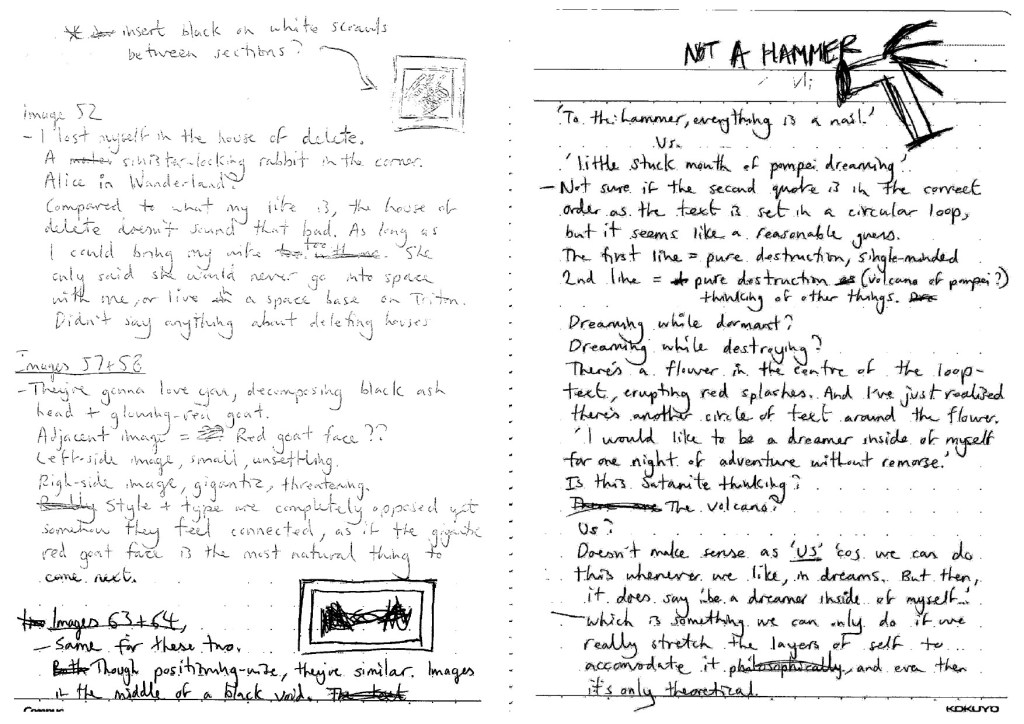 insert black on white scrawls
between sections?
image 52
- I lost myself in the house of delete.
A sinister-looking rabbit in the corner.
Alice in Wanderland?
Compared to what my life is, the house of
delete doesn't sound that bad. As long as
I could bring my wife too. She
only said she would never go into space
with me, or live in a space base on Triton.
Didn't say anything about deleting houses
Images 57+58
- They're gonna love you, decomposing black ash
head + glowing-red goat.
Adjacent image = Red goat face??
Left-side image, small, unsettling.
Righ-side image, gigantic, threatening.
Style + type are completely opposed yet
somehow they feel connected, as if the gigantic
red goat face is the most natural thing to
come next.
Images 63+64,
- Same for these two.
Though positioning-wize, they're similar. Images
in the middle of a black void.
Campus
NOT A HAMMER
'To the hammer, everything is a nail.'
Vs.
'little stuck mouth of pompei dreaming'
- Not sure if the second quote is in the correct
order as the text is set in a circular loop,
but it seems like a reasonable guess.
The first line = pure destruction, single-minded
2nd line = pure destruction (volcano of pompei?)
thinking of other things.
Dreaming while dormant?
Dreaming while destroying?
There's a flower in the centre of the loop-
text, erupting red splashes. And I've just realized
there's another circle of text around the flower.
'I would like to be a dreamer inside of myself
for one night of adventure without remorse.'
Is this Satanite thinking?
The volcano?
Us?
Doesn't make sense as 'US' 'cos we can do
this whenever we like, in dreams. But then,
it does say 'be a dreamer inside of myself..'
which is something we can only do if we
really stretch the layers of self to
accomodate it, and even then
it's only theoretical.
KOKUYO